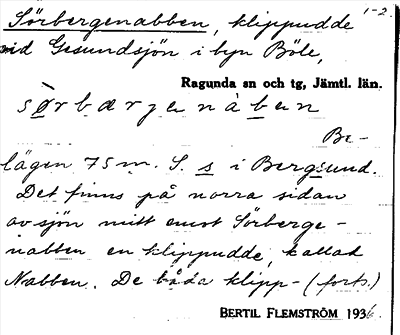 1-2.
Sörbergenabben, klippudde
vid Gesundsjön i byn Böle,
Ragunda sn och tg, Jämtl. län.
sø̀rbærgenàben
Be-
lägen 75 m. S. s i Bergsund.
Det finns på norra sidan
av sjön mitt emot Sörberge-
nabben en klippudde, kallad
Nabben. De båda klipp- (forts.)
BERTIL FLEMSTRÖM 1936.